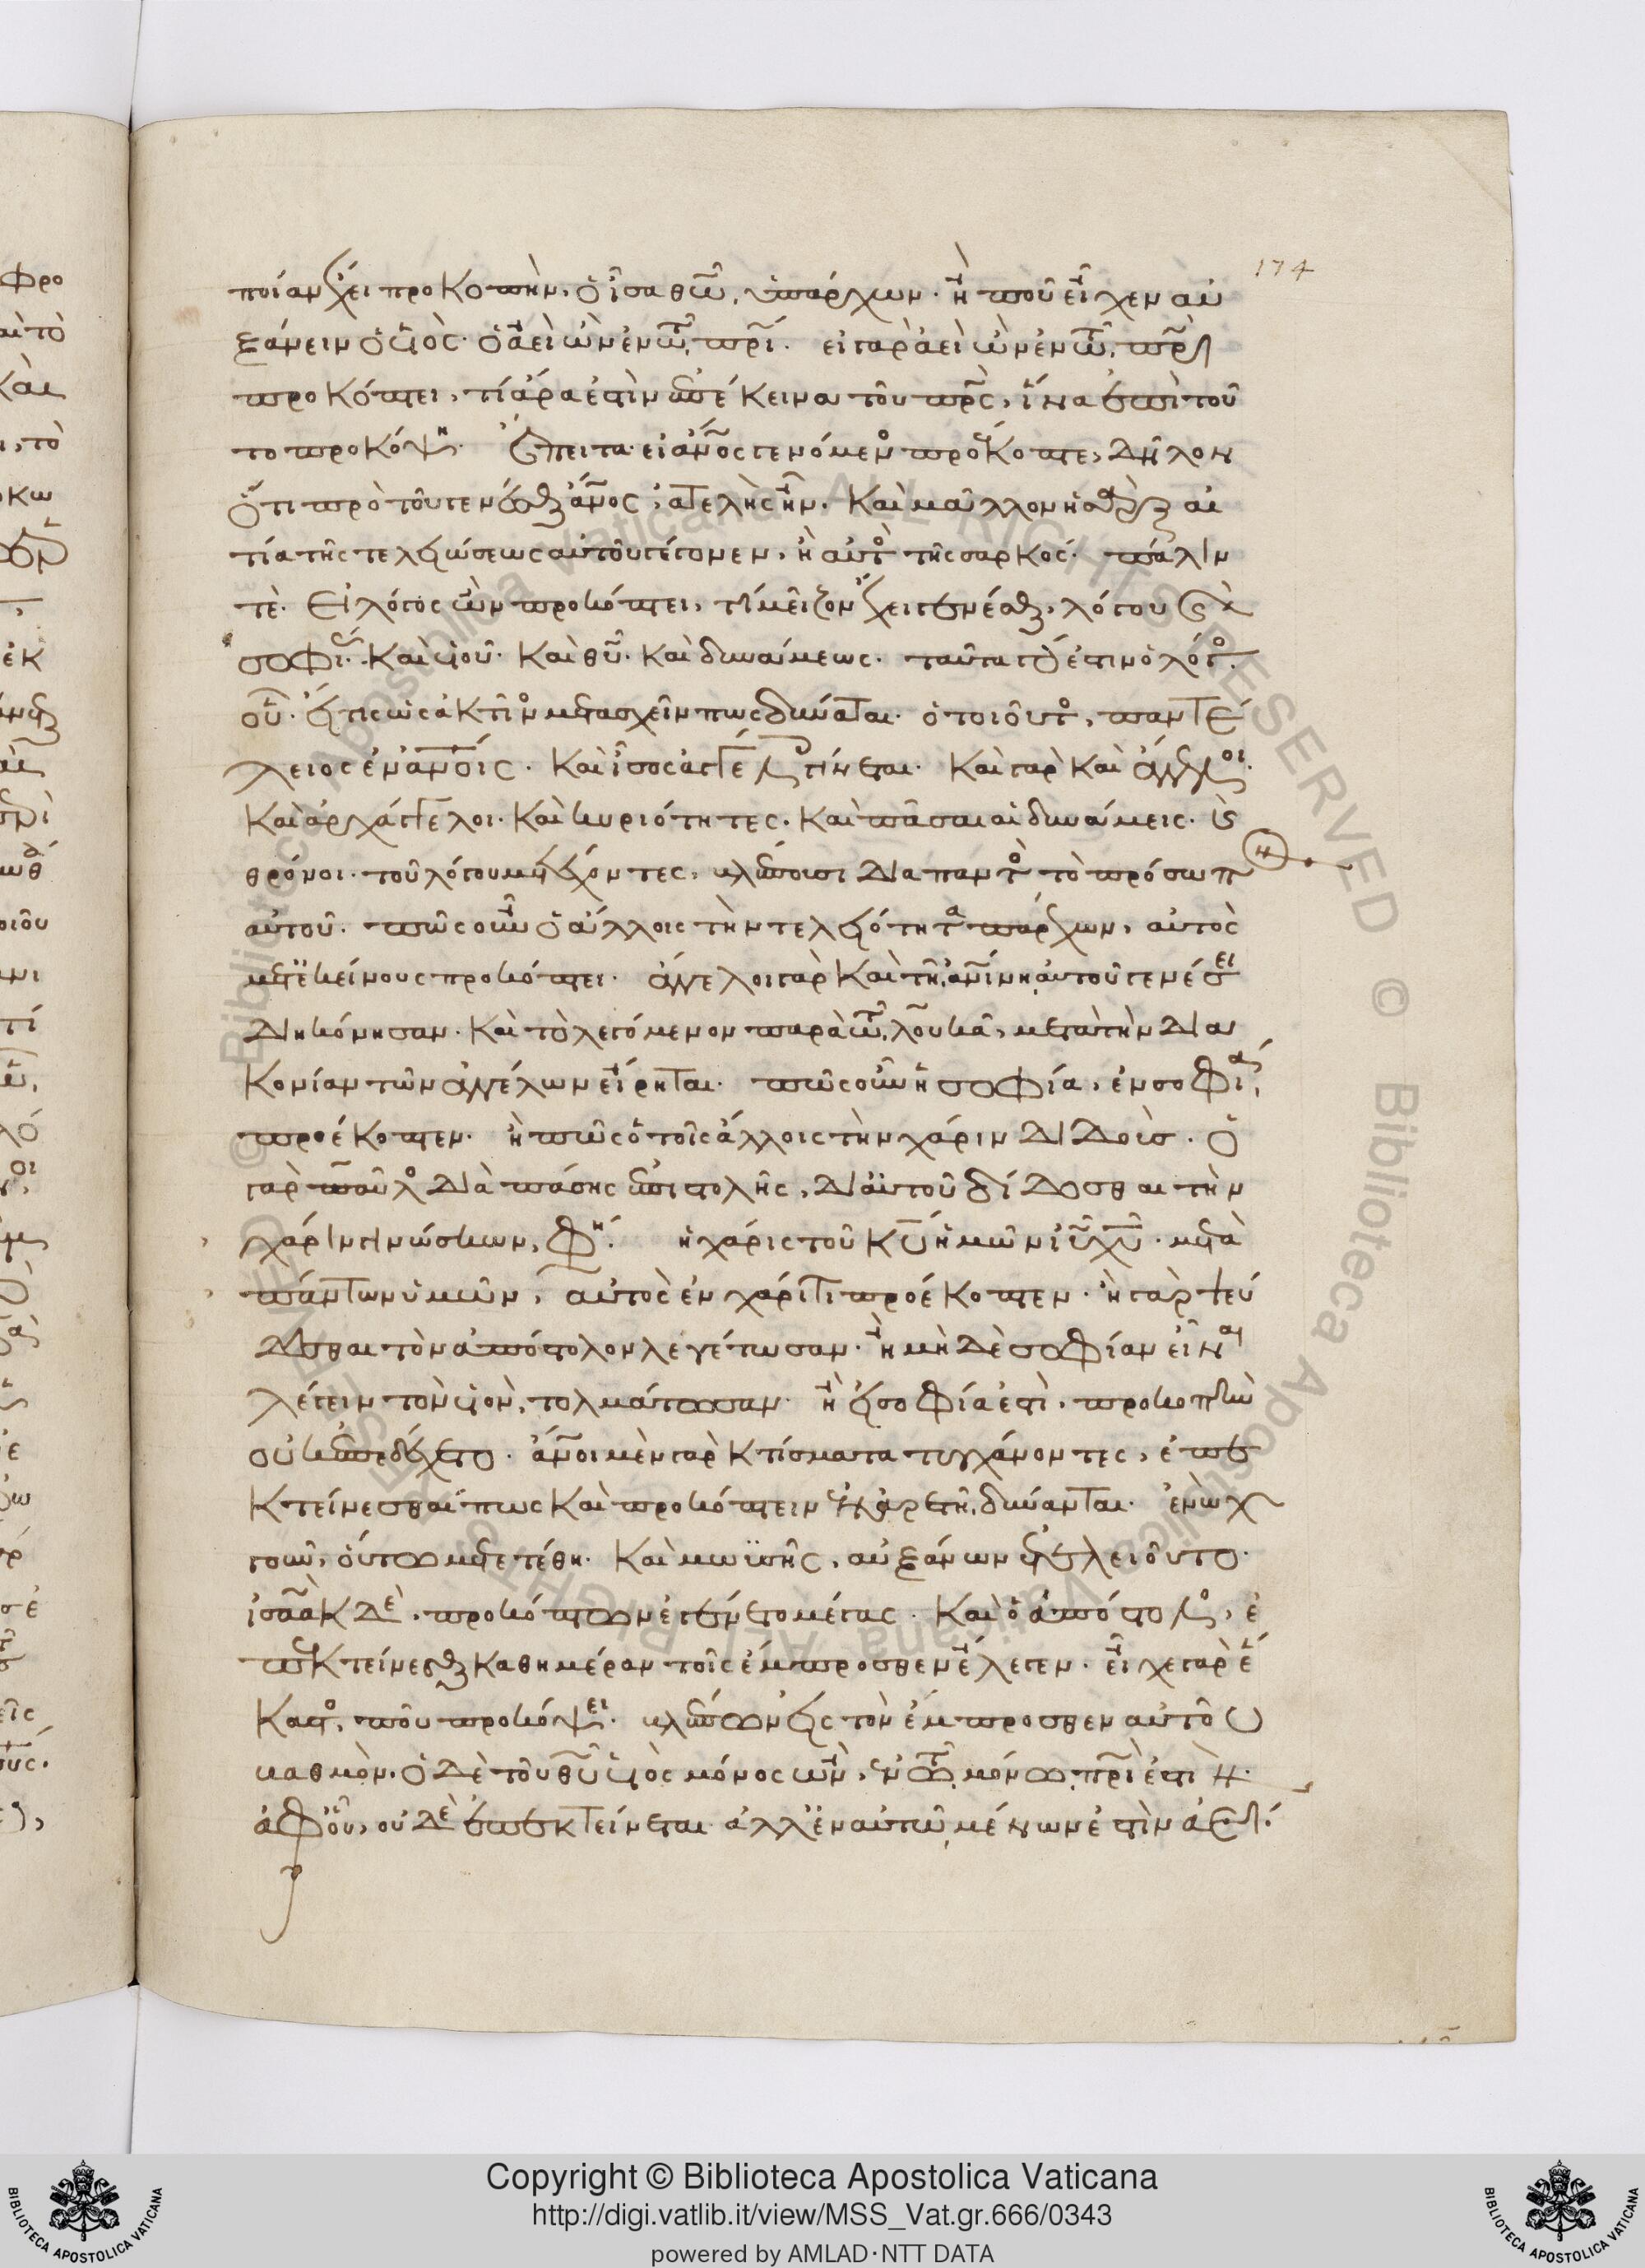 174
ποίαν ἔχει προκοπὴν, ὁ ἴσα θῶ ὑπάρχων. ἢ ποῦ εἶχεν αὐ
ξάνειν ὁ υἱὸς ὁ ἀεὶ ὢν ἐν τῶ πρί. εἰ γὰρ ἀεὶ ὢν ἐν τῶ πρὶ
προκόπτει, τί ἄρα ἐστὶν ἐπέκεινα τοῦ πρς, ἵνα ἐπὶ τοῦ
το προκόψη. Ἔπειτα εἰ ἄνος γενόμενος προέκοπτε, δῆλον
ὅτι πρὸ τοῦ γενέσθαι ἄνος, ἀτελὴς ἦν. καὶ μᾶλλον ἡ σὰρξ αἰ
τία τῆς τελειώσεως αὐτοῦ γέγονεν, ἢ αὐτὸς τῆς σαρκός. πάλιν
τὲ. εἰ λόγος ὢν προκόπτει, τί μεῖζον ἔχει γενέσθαι, λόγου καὶ
σοφίας. καὶ υἱοῦ. καὶ θῦ. καὶ δυνάμεως. ταῦτα γάρ ἐστιν ὁ λόγος.
οὗ. εἴ τις ὡς ἀκτῖνος μετασχεῖν πως δύναται. ὁ τοιοῦτος, παντέ
λειος ἐν ἀνοις. καὶ ἴσος ἀγγέλοις γίνεται. καὶ γὰρ καὶ ἄγγελοι.
καὶ ἀρχάγγελοι. καὶ κυριότητες. καὶ πᾶσαι αἱ δυνάμεις. καὶ
θρόνοι. τοῦ λόγου μετέχοντες, βλέπουσι διαπαντὸς τὸ πρόσωπον
αὐτοῦ. πῶς οὖν ὁ ἄλλοις τὴν τελειότητα παρέχων, αὐτὸς
μετ' ἐκείνους προκόπτει. ἄγγελοι γὰρ καὶ τῆ ἀνίνη αὐτοῦ γενέσει
διηκόνησαν. καὶ τὸ λεγόμενον παρὰ τῶ λουκᾶ, μετὰ τὴν δια
κονίαν τῶν ἀγγέλων εἴρηται. πῶς οὖν ἡ σοφία, ἐν σοφία,
προέκοπτεν. ἢ πῶς ὁ τοῖς ἄλλοις τὴν χάριν διδούς. ὁ
γὰρ παῦλος διὰ πάσης ἐπιστολῆς, δι' αὐτοῦ δίδοσθαι τὴν
χάριν γινώσκων, φη. ἡ χάρις τοῦ κῦ ἡμῶν ἰῦ χῦ. μετὰ
πάντων ὑμῶν, αὐτὸς ἐν χάριτι προέκοπτεν. ἢ γὰρ ψεύ
δεσθαι τὸν ἀπόστολον λεγέτωσαν. ἢ μὴ δὲ σοφίαν εἶναι
λέγειν τὸν υἱὸν, τολμάτωσαν. ἢ εἰ σοφία ἐστὶ, προκοπὴν
οὐκ ἐπεδέχετο. ἄνοι μὲν γὰρ κτίσματα τυγχάνοντες, ἐπε
κτείνεσθαί πως καὶ προκόπτειν ἐν ἀρετῆ δύνανται. ἐνὼχ
γοῦν, οὕτω μετετέθη. καὶ μωϋσῆς, αὐξάνων ἐτελειοῦτο.
ἰσαὰκ δὲ, προκόπτων ἐγίνετο μέγας. καὶ ὁ ἀπόστολος, ἐ
πεκτείνεσθαι καθημέραν τοῖς ἔμπροσθεν ἔλεγεν. εἶχε γὰρ ἕ
καστος, ποῦ προκόψει. βλέπων εἰς τὸν ἔμπροσθεν αὐτοῦ
βαθμόν. ὁ δὲ τοῦ θῦ υἱὸς μόνος ὢν, ἐν τῶ μόνω πρὶ ἐστὶν.
ἀφ' οὗ, οὐδὲ ἐπεκτείνεται ἀλλ' ἐν αὐτῶ μένων ἐστὶν ἀεί.
Copyright © Biblioteca Apostolica Vaticana
http://digi.vatlib.it/view/MSS_Vat.gr.666/0343
powered by AMLAD·NTT DATA